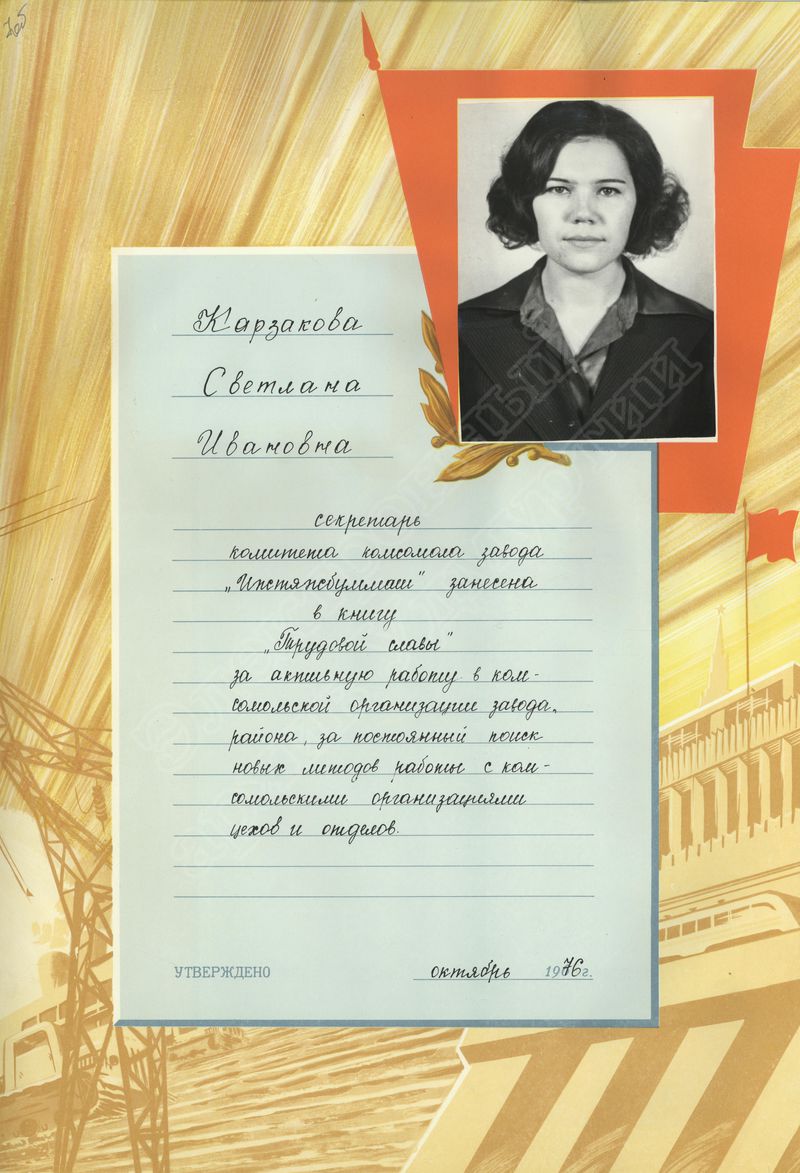 Карзакова
Светлана
Ивановна
секретарь
комитета комсомола завода
"Ижтяжбуммаш" занесена
в книгу
"Трудовой славы"
за активную работу в ком-
сомольской организации завода,
района, за постоянный поиск
новых методов работы с ком-
сомольскими организациями
цехов и отделов.
УТВЕРЖДЕНО октябрь 1976г.